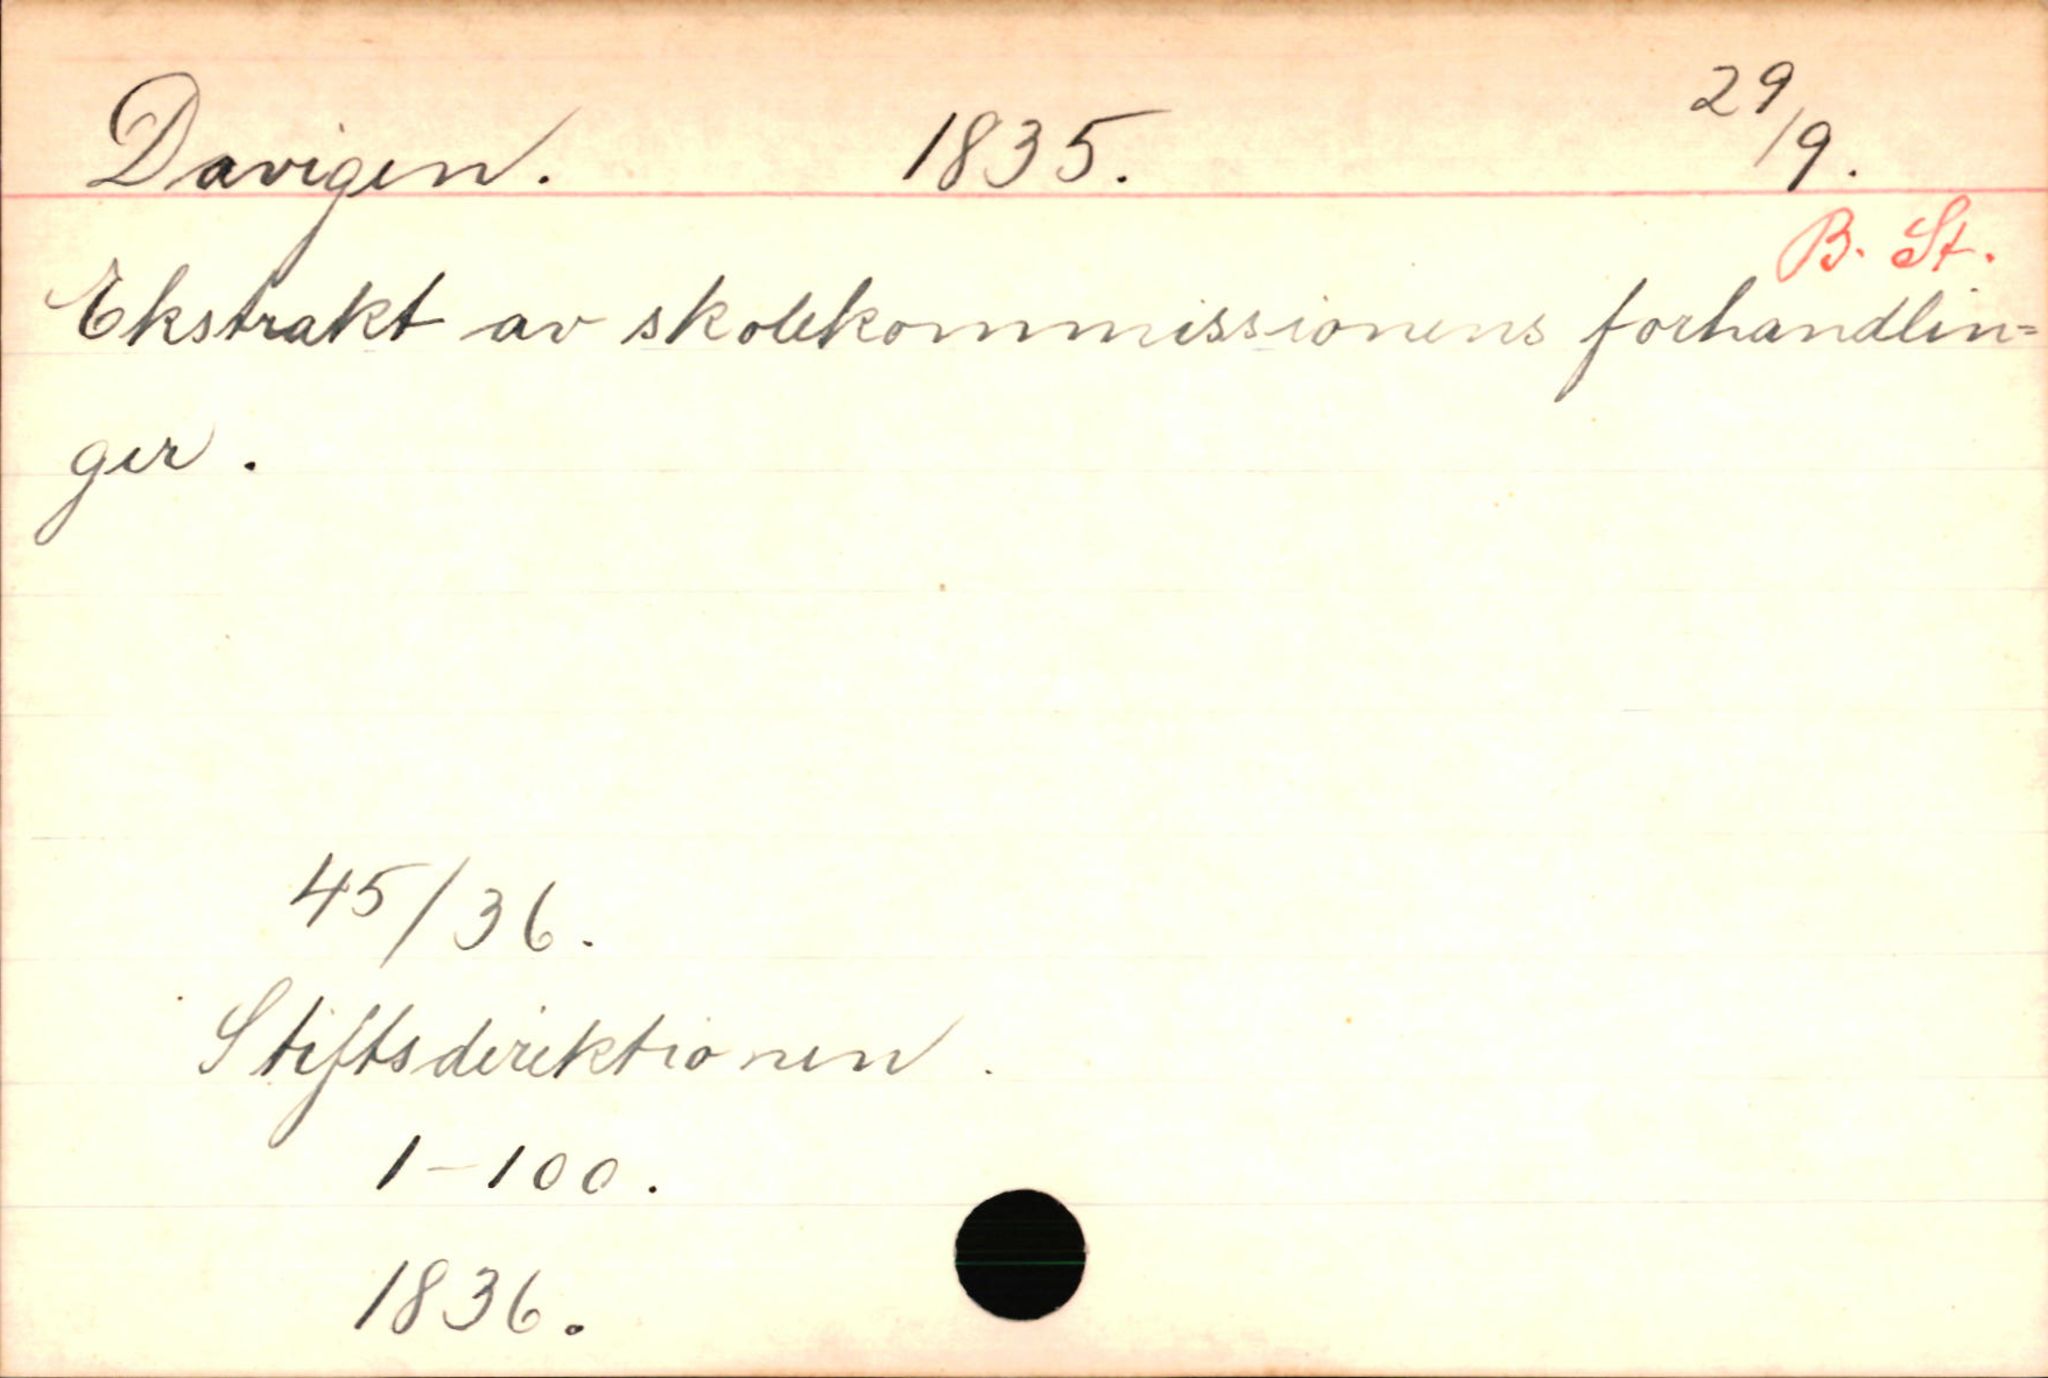 Davigen. 1835. 29/9.
B. St.
Ekstrakt av skolekommissionens forhandlin=
ger.
45/36.
Stiftsdirektionen.
1-100.
1836.